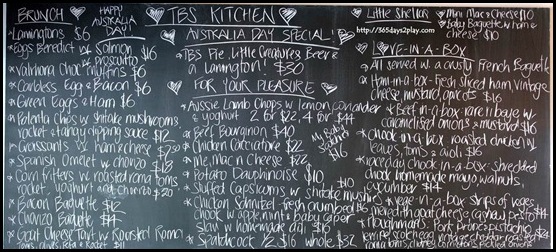 BRUNCH
HAPPY
AUSTRALIA
DAY!
Lamingtons $6
Eggs Benedict w Salmon
w prosciutto
Valrhona Choc Muffins $6
Carbless Egg & Bacon $6
Green Eggs & Ham $6
Potenta Chips w shitake mushrooms
rocket & tangy dipping sauce $12
Croissants w ham & cheese $7.50
Spanish Omelet w chorizo $12
Corn fritters w roasted roma toms
rocket, yoghurt and chorizo $20
Bacon Baguette $12
Chorizo Baguette $14
Goat Cheese Tart w Roasted Roma
Toms, Olives, Feta & Rocket $11
TBS KITCHEN
AUSTRALIA DAY SPECIAL!
TBS Pie, Little Creatures Beer &
a Lamington! $30
FOR YOUR PLEASURE
Aussie Lamb Chops w lemon, coriander
& yoghurt 2 for $22, 4 for $44
Beef Bourginon $40
Chicken Cacciatore $22
Mac n Cheese $22
Potato Dauphinoise $10
Stuffed Capsicums w shitake mushrms
Chicken Schnitzel - fresh crumbed $16
chook w apple, mint & baby caper
slaw w homemade aioli $16
Spatchcock 2 $16 whole $32
Little Shellas
Mini Mac n Cheese $10
Baby Baguette w ham &
cheese $10
http://365days2play.com
LOVE-IN-A-BOX
All served w a crusty French Baguette
Ham-in-a-box - fresh sliced ham, vintage
cheese, mustard, apricots $16
Beef-in-a-box - rare ribeye w
caramelised onions & mustard $16
chook-in-a-box - roasted chicken w
leaves, toms & aioli $16
raceday chook in-a-box - shredded
chook, homemade mayo, walnuts,
cucumber $14
vege-in-a-box - strips of veges
meredith goat cheese, cashew pesto $14